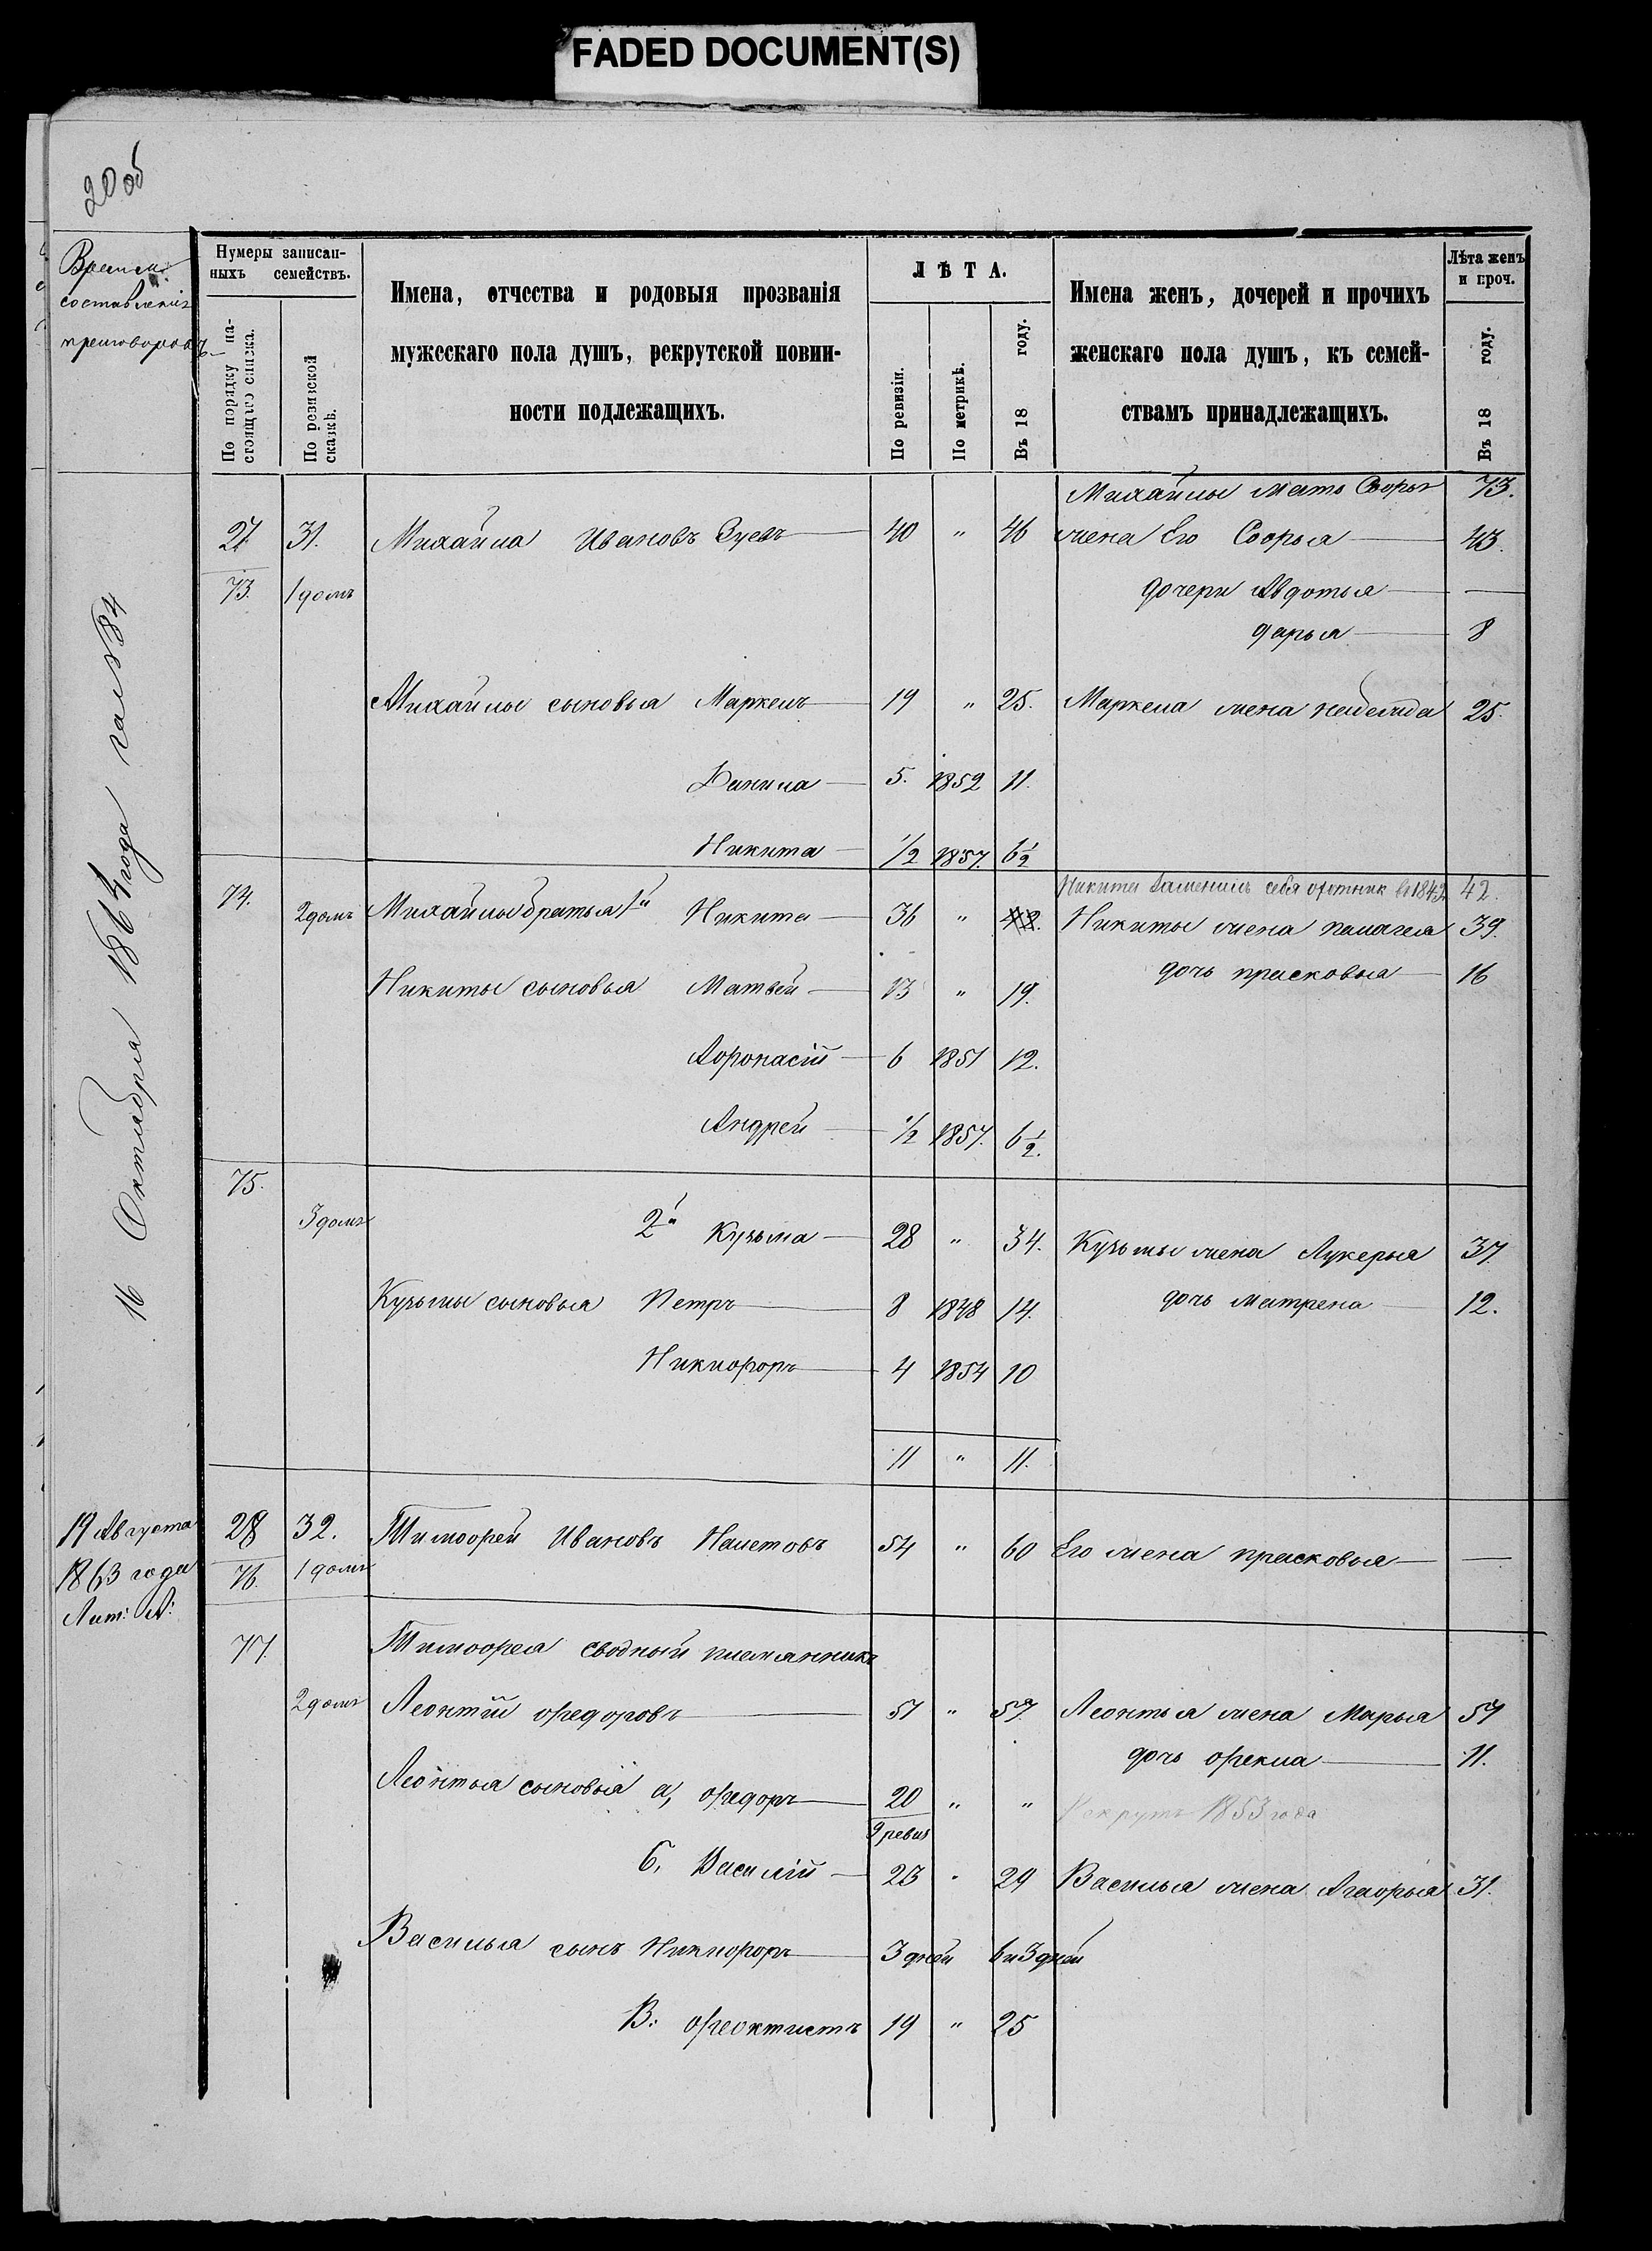 FADED DOCUMENT(S)
20 об
Время
составления
приговоровъ
Нумеры записан-
ныхъ семействъ.
По порядку на-
стоящаго списка.
По ревизской
сказкѣ.
Имена, отчества и родовыя прозванія
мужескаго пола душъ, рекрутской повин-
ности подлежащихъ.
ЛѢТА.
По ревизіи.
По метрикѣ.
Въ 18 году.
Имена женъ, дочерей и прочихъ
женскаго пола душъ, къ семей-
ствамъ принадлежащихъ.
Лѣта женъ
и проч.
Въ 18 году.
16 Октября 1864 года № 84
Михайлы мать 73.
27 31. Михайла Ивановъ Зуевъ 40 " 46 жена Его Софья 43.
73. 1 домъ дочери Авдотья —
дарья 8
Михайлы сыновья Маркелъ 19 " 25. Маркела жена 25.
Данила 5. 1852 11.
Никита 1/2 1857. 6 1/2
Никита себя охотник в 1843 42.
74. 2 домъ Михайлы братья 1й Никита 36 " 42. Никиты жена пелагея 39.
Никиты сыновья Матвей 13 " 19. дочь прасковья 16
Афонасій 6 1851 12.
Андрей 1/2 1857. 6 1/2.
75.
3 домъ 2й Кузьма 28 " 34. Кузьмы жена Лукерья 37.
Кузьмы сыновья Петръ 8 1848 14. дочь матрена 12.
Никифоръ 4 1854 10
11 " 11.
19 Августа 28 32. Тимофей Ивановъ 54 " 60 Его жена прасковья —
1863 года 76. 1 домъ
Лит: А:
77. Тимофея сводный племянникъ
2 домъ Леонтій федоровъ 51 " 57. Леонтья жена Марья 57
дочь фекла 11.
Леонтья сыновья а, федоръ 20 " " Рекрутъ 1853 года
9 ревиз
б, Василій 23 " 29 Василья жена Агафья 31.
Василья сынъ Никифоръ 3 дней 6 и 3 дней
В: феоктистъ 19 " 25